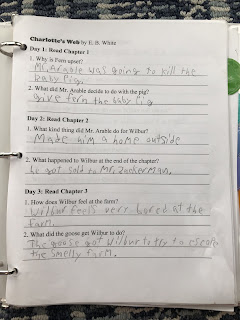 Charlotte's Web by E. B. White
Day 1: Read Chapter 1
1. Why is Fern upset?
Mr. Arable was going to kill the
baby pig.
2. What did Mr. Arable decide to do with the pig?
give fern the baby pig
Day 2: Read Chapter 2
1. What kind thing did Mr. Arable do for Wilbur?
Made him a home outside
2. What happened to Wilbur at the end of the chapter?
he got sold to Mr. Zuckerman.
Day 3: Read Chapter 3
1. How does Wilbur feel at the farm?
Wilbur feels very bored at the
farm.
2. What did the goose get Wilbur to do?
The goose got Wilbur to try to escape
the smelly farm.